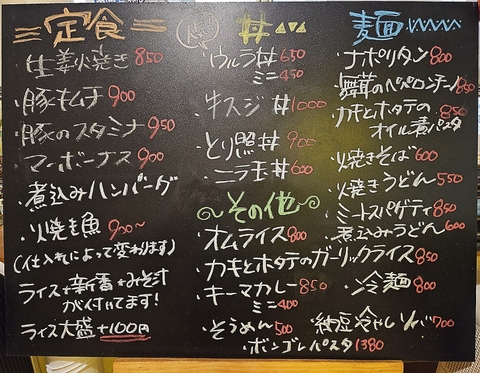 定食
・生姜焼き 850
・豚キムチ 900
・豚のスタミナ 950
・マーボーナス 900
・煮込みハンバーグ
・火焼き魚 900~
(仕入れによって変わります)
ライス+新香+みそ汁
が付いてます!
ライス大盛+100円
丼
・ウルラ丼 650
ミニ 450
・牛スジ丼 1000
・とり照丼 900
・ニラ玉丼 600
~その他~
・オムライス 800
・カキとホタテのガーリックライス 850
・キーマカレー 850
ミニ 400
・そうめん 500
・ボンゴレパスタ 1380
麺
・ナポリタン 800
・舞茸のペペロンチーノ 850
・カキとホタテの
オイル漬パスタ 850
・焼きそば 600
・焼きうどん 550
・ミートスパゲティ 850
・煮込みうどん 600
・冷麺 800
・納豆冷やしソバ 700